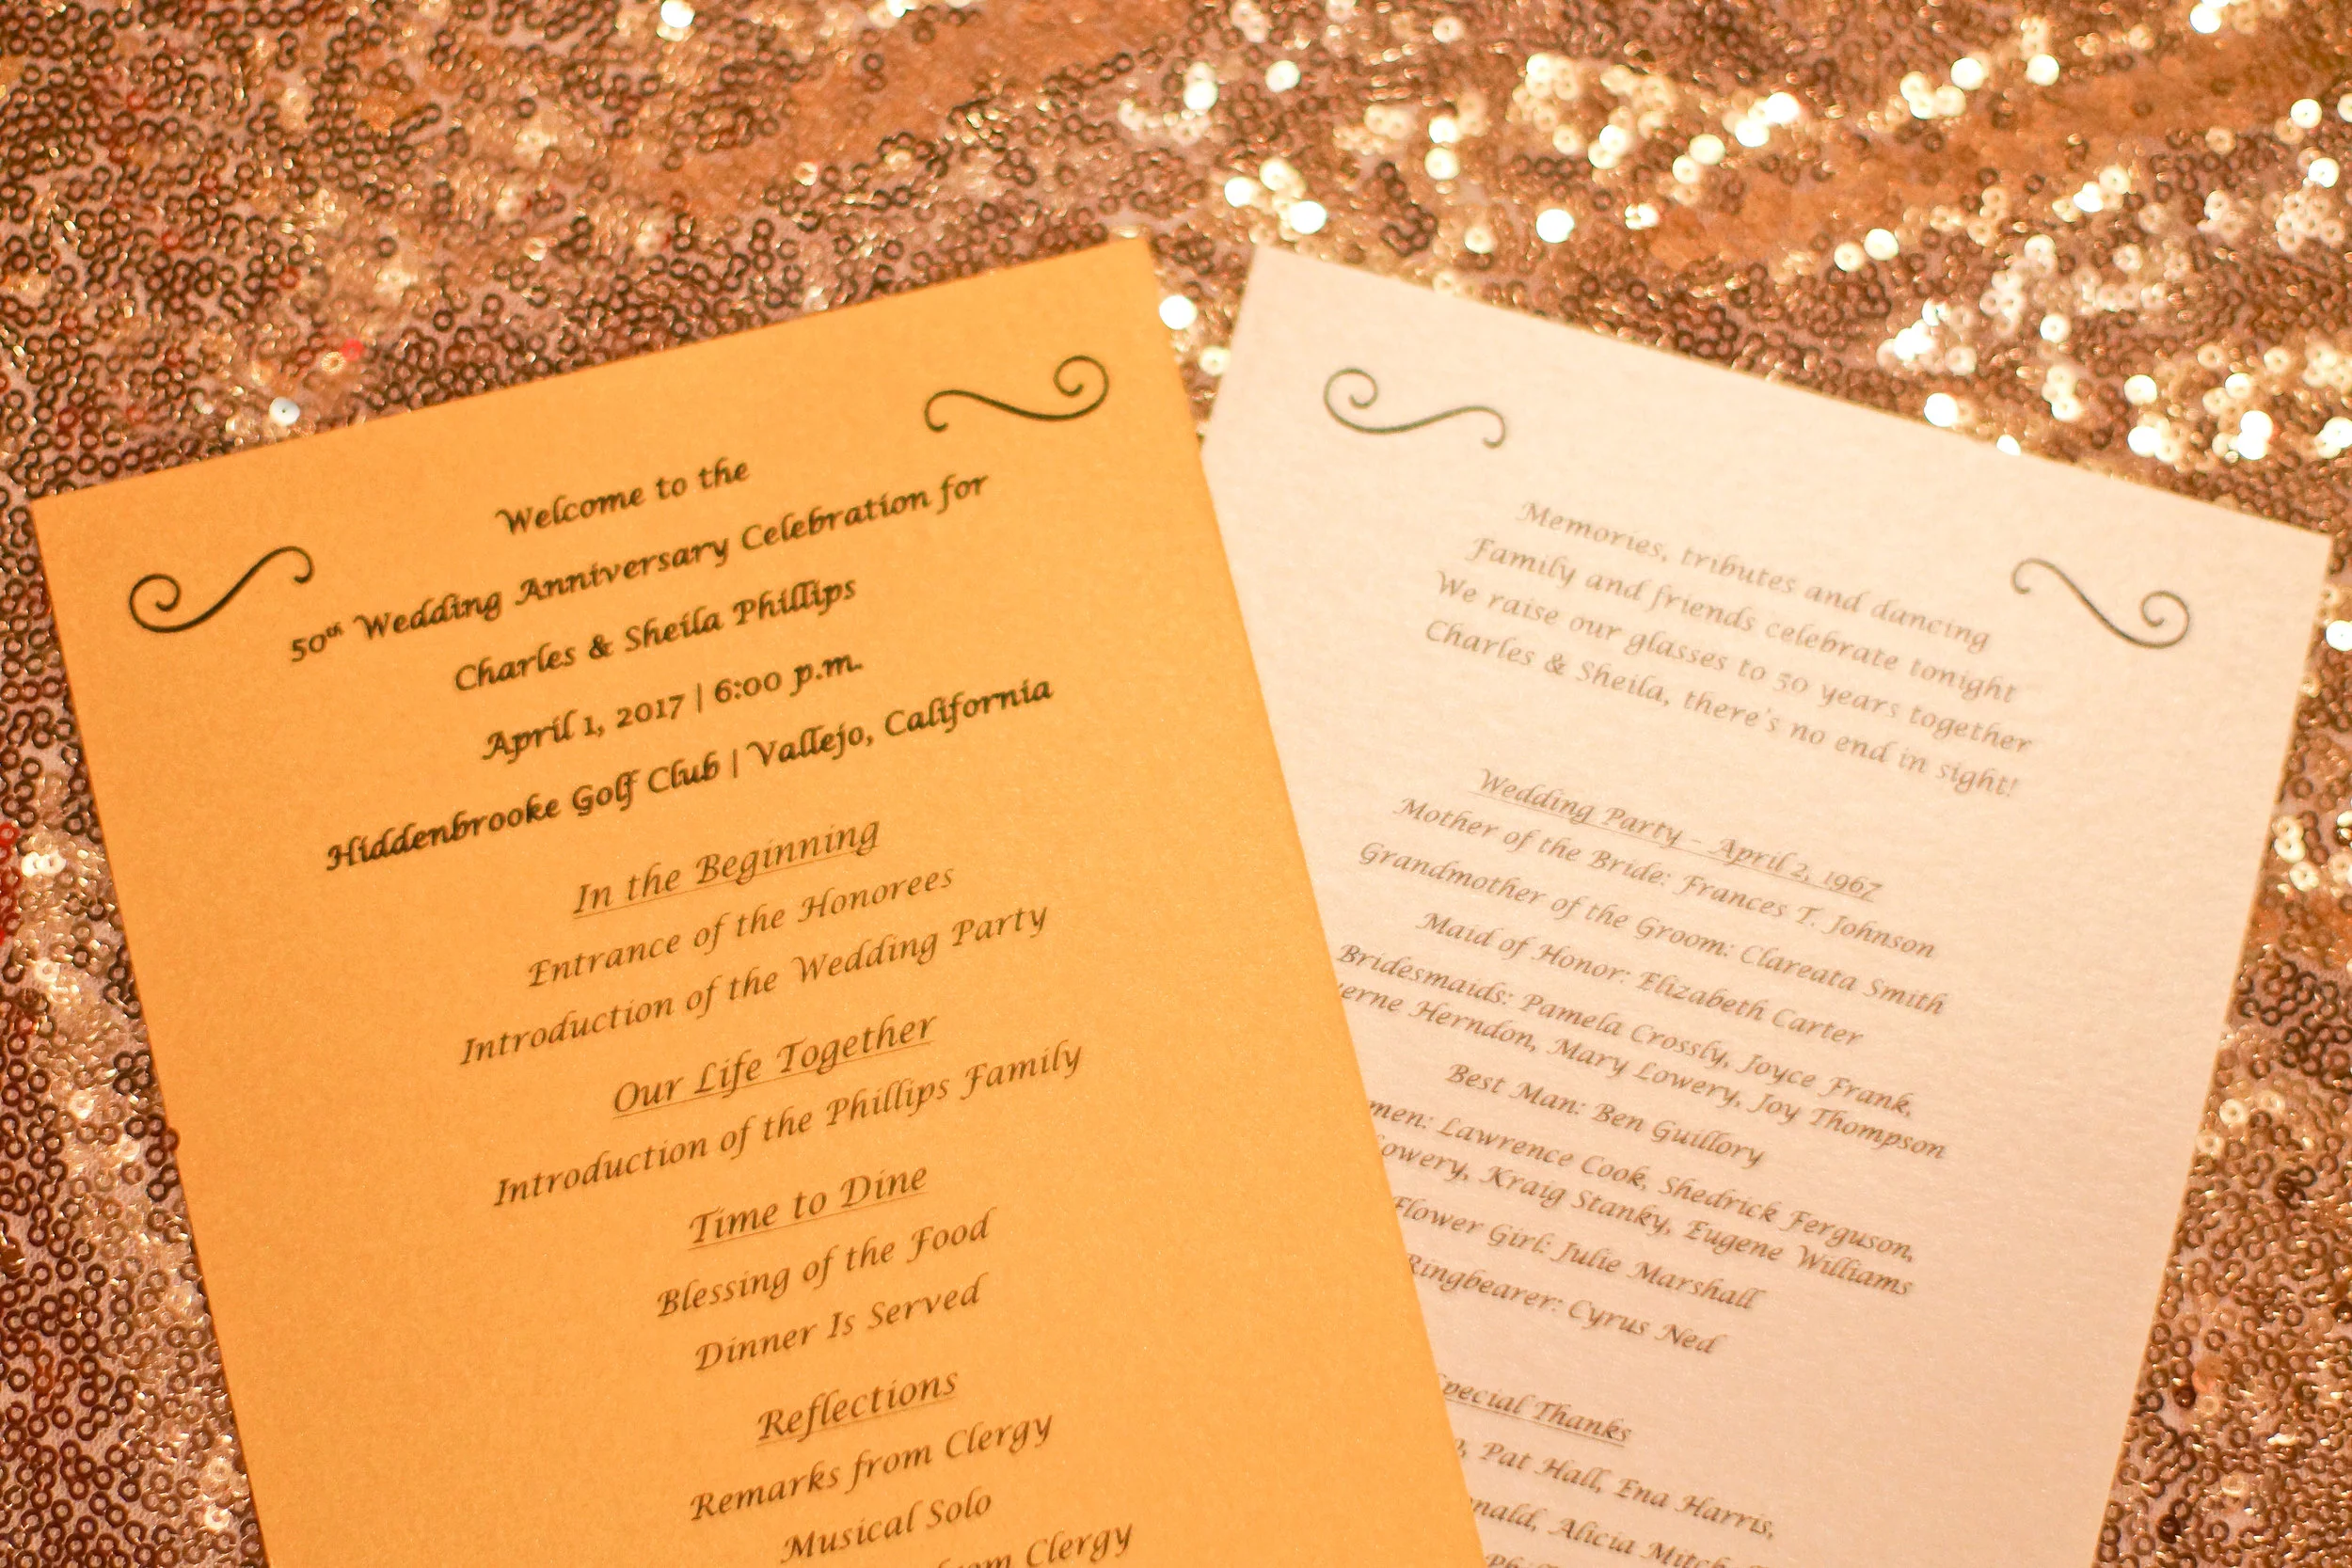 Welcome to the
50th Wedding Anniversary Celebration for
Charles & Sheila Phillips
April 1, 2017 | 6:00 p.m.
Hiddenbrooke Golf Club | Vallejo, California
In the Beginning
Entrance of the Honorees
Introduction of the Wedding Party
Our Life Together
Introduction of the Phillips Family
Time to Dine
Blessing of the Food
Dinner Is Served
Reflections
Remarks from Clergy
Musical Solo
Clergy
Memories, tributes and dancing
Family and friends celebrate tonight
We raise our glasses to 50 years together
Charles & Sheila, there's no end in sight!
Wedding Party – April 2, 1967
Mother of the Bride: Frances T. Johnson
Grandmother of the Groom: Clareata Smith
Maid of Honor: Elizabeth Carter
Bridesmaids: Pamela Crossly, Joyce Frank,
Herndon, Mary Lowery, Joy Thompson
Best Man: Ben Guillory
men: Lawrence Cook, Shedrick Ferguson,
owery, Kraig Stanky, Eugene Williams
Flower Girl: Julie Marshall
Ringbearer: Cyrus Ned
pecial Thanks
, Pat Hall, Ena Harris,
nald, Alicia